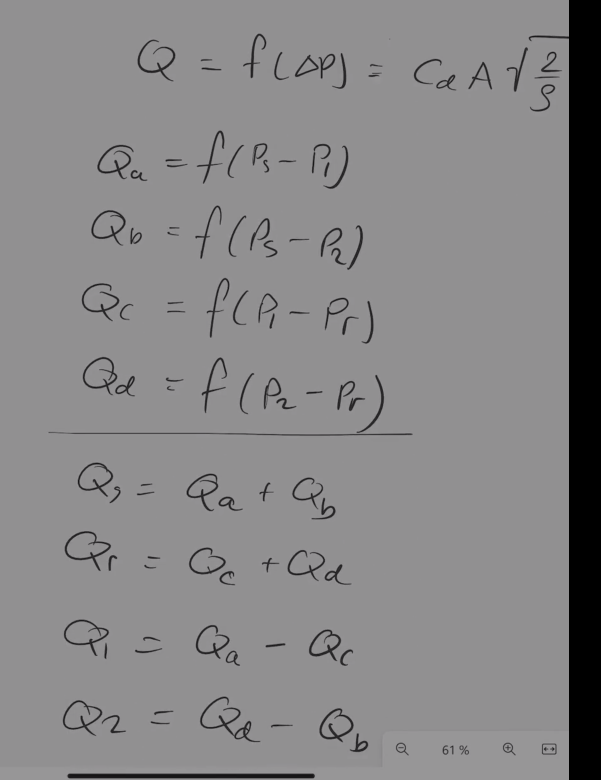 Q = f(ΔP) = Cd A √2/ρ
Qa = f(Ps - P1)
Qb = f(Ps - P2)
Qc = f(P1 - Pr)
Qd = f(P2 - Pr)
Qs = Qa + Qb
Qr = Qc + Qd
Q1 = Qa - Qc
Q2 = Qd - Qb
61 %